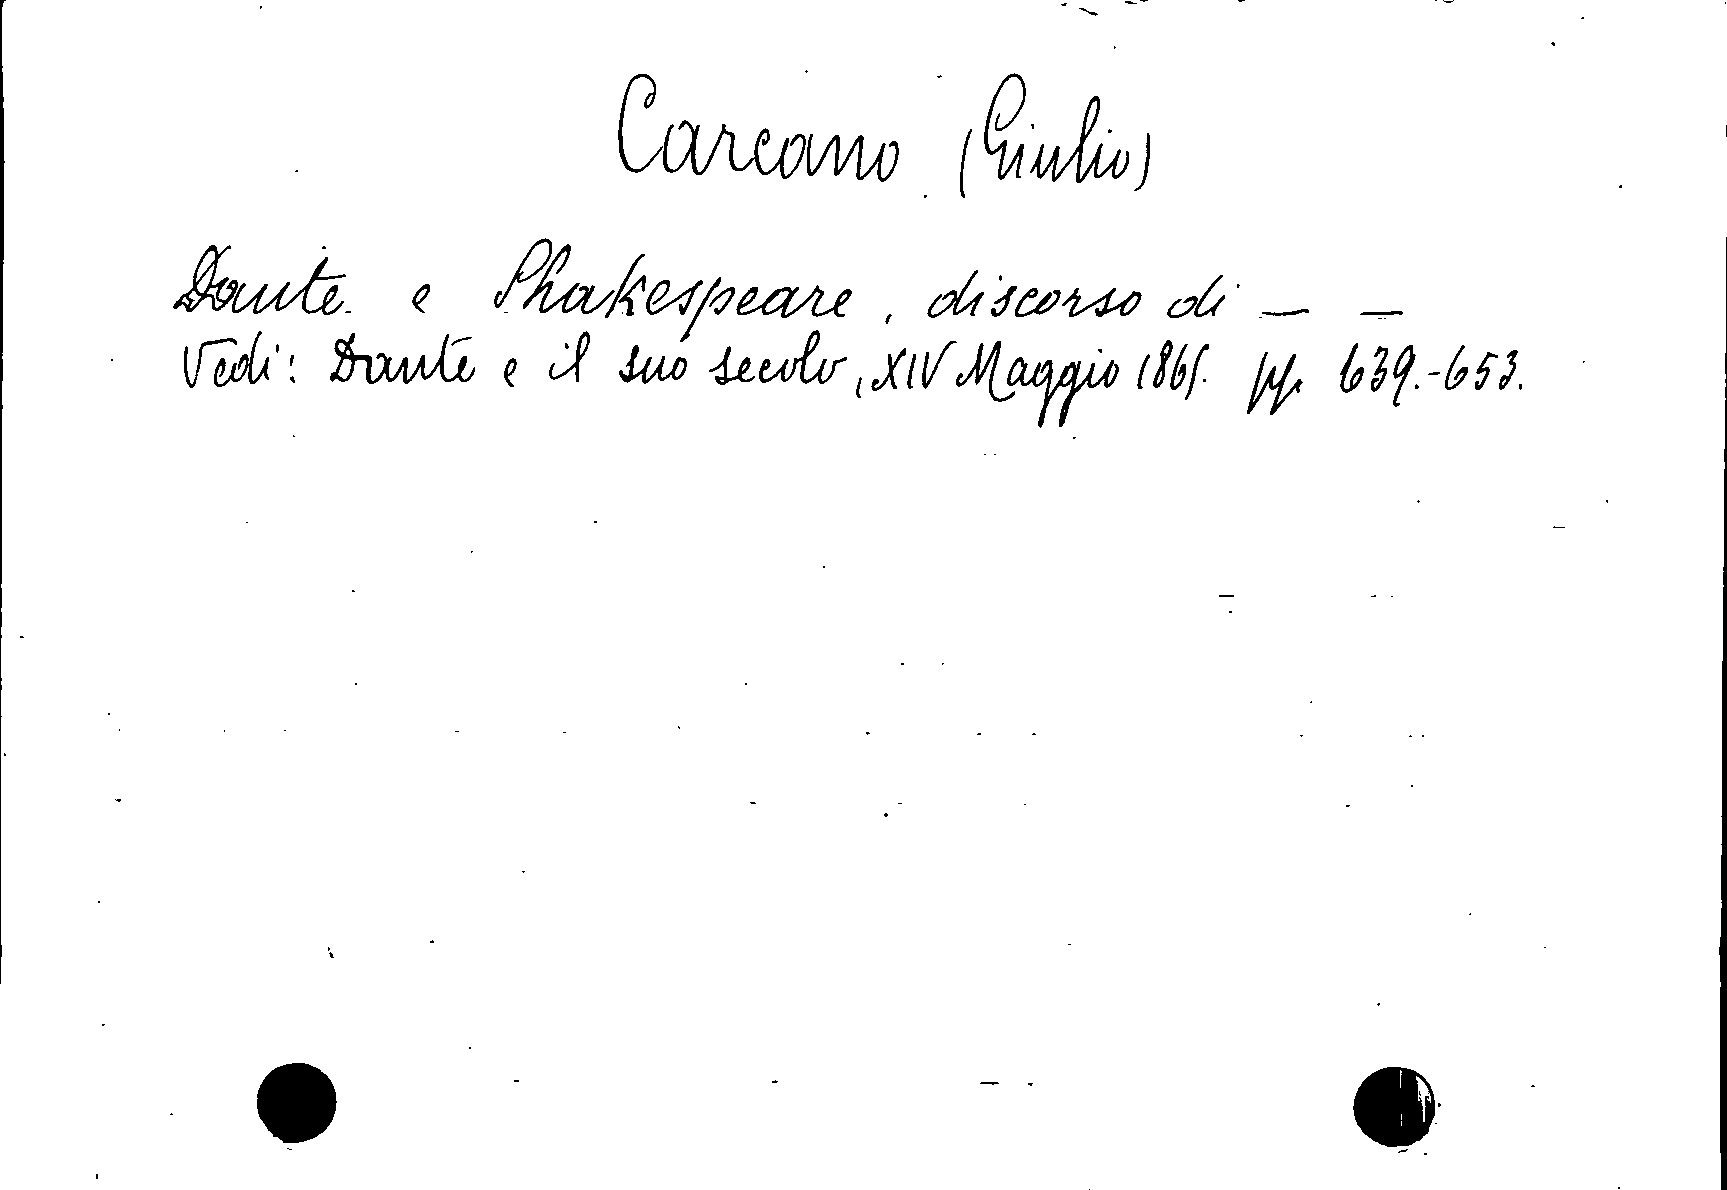 Carcano (Giulio)
Dante e Shakespeare, discorso di — —
Vedi: Dante e il suo secolo, XIV Maggio 1865. pp. 639.-653.